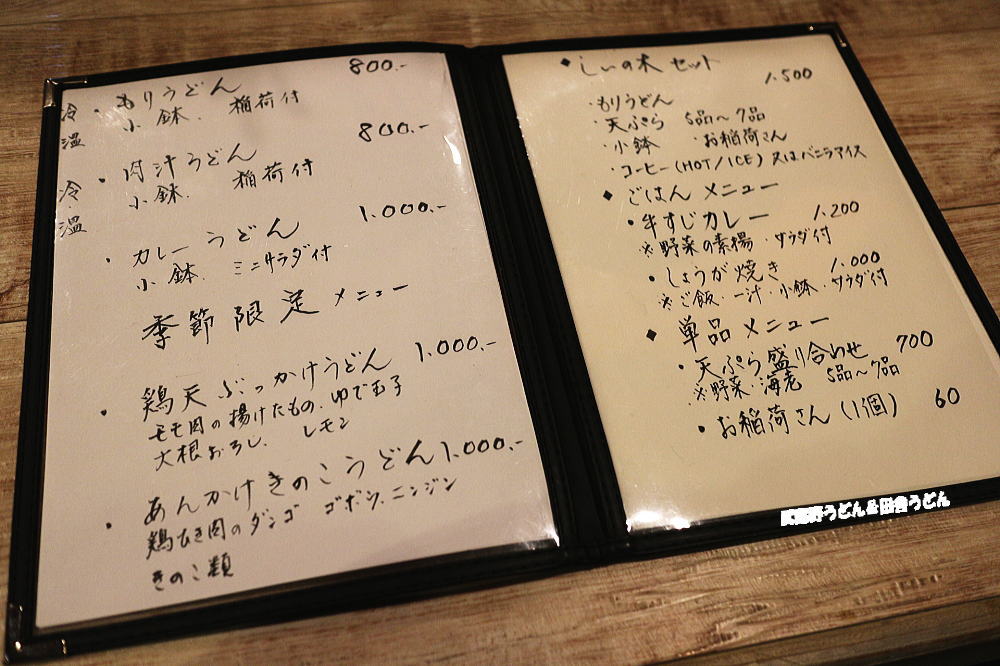 800.-
冷 ・もりうどん
温 小鉢. 稲荷付
800.-
冷 ・肉汁うどん
温 小鉢. 稲荷付
1.000.-
・カレーうどん
小鉢. ミニサラダ付
季節限定メニュー
・鶏天ぶっかけうどん 1.000.-
モモ肉の揚げたもの.ゆで玉子
大根おろし. レモン
・あんかけきのこうどん 1.000.-
鶏ひき肉のダンゴ ゴボウ.ニンジン
きのこ類
◆しいの木セット
1.500
・もりうどん
・天ぷら 5品〜7品
・小鉢 ・お稲荷さん
・コーヒー(HOT/ICE)又はバニラアイス
◆ごはんメニュー
・牛すじカレー 1.200
※野菜の素揚・サラダ付
・しょうが焼き 1.000
※ご飯・一汁・小鉢・サラダ付
◆単品メニュー
・天ぷら盛り合わせ 700
※野菜・海老 5品〜7品
・お稲荷さん(1個) 60
武蔵野うどん&田舎うどん